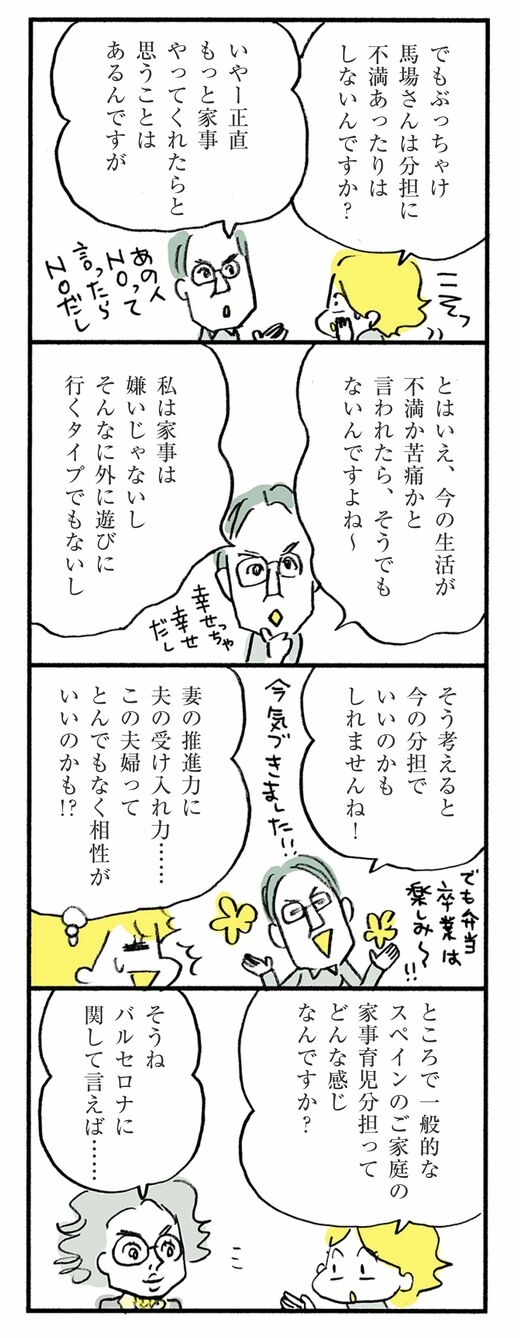 でもぶっちゃけ
馬場さんは分担に
不満あったりは
しないんですか?
こそっ
いやー正直
もっと家事
やってくれたらと
思うことは
あるんですが
あの人
NOって
言ったら
NOだし
とはいえ、今の生活が
不満か苦痛かと
言われたら、そうでも
ないんですよね〜
私は家事は
嫌いじゃないし
そんなに外に遊びに
行くタイプでもないし
幸せっちゃ
幸せ
だし
そう考えると
今の分担で
いいのかも
しれませんね!
今気づきました!!
でも弁当
卒業は
楽しみ〜!!
妻の推進力に
夫の受け入れ力……
この夫婦って
とんでもなく相性が
いいのかも!?
ところで一般的な
スペインのご家庭の
家事育児分担って
どんな感じ
なんですか?
そうね
バルセロナに
関して言えば……